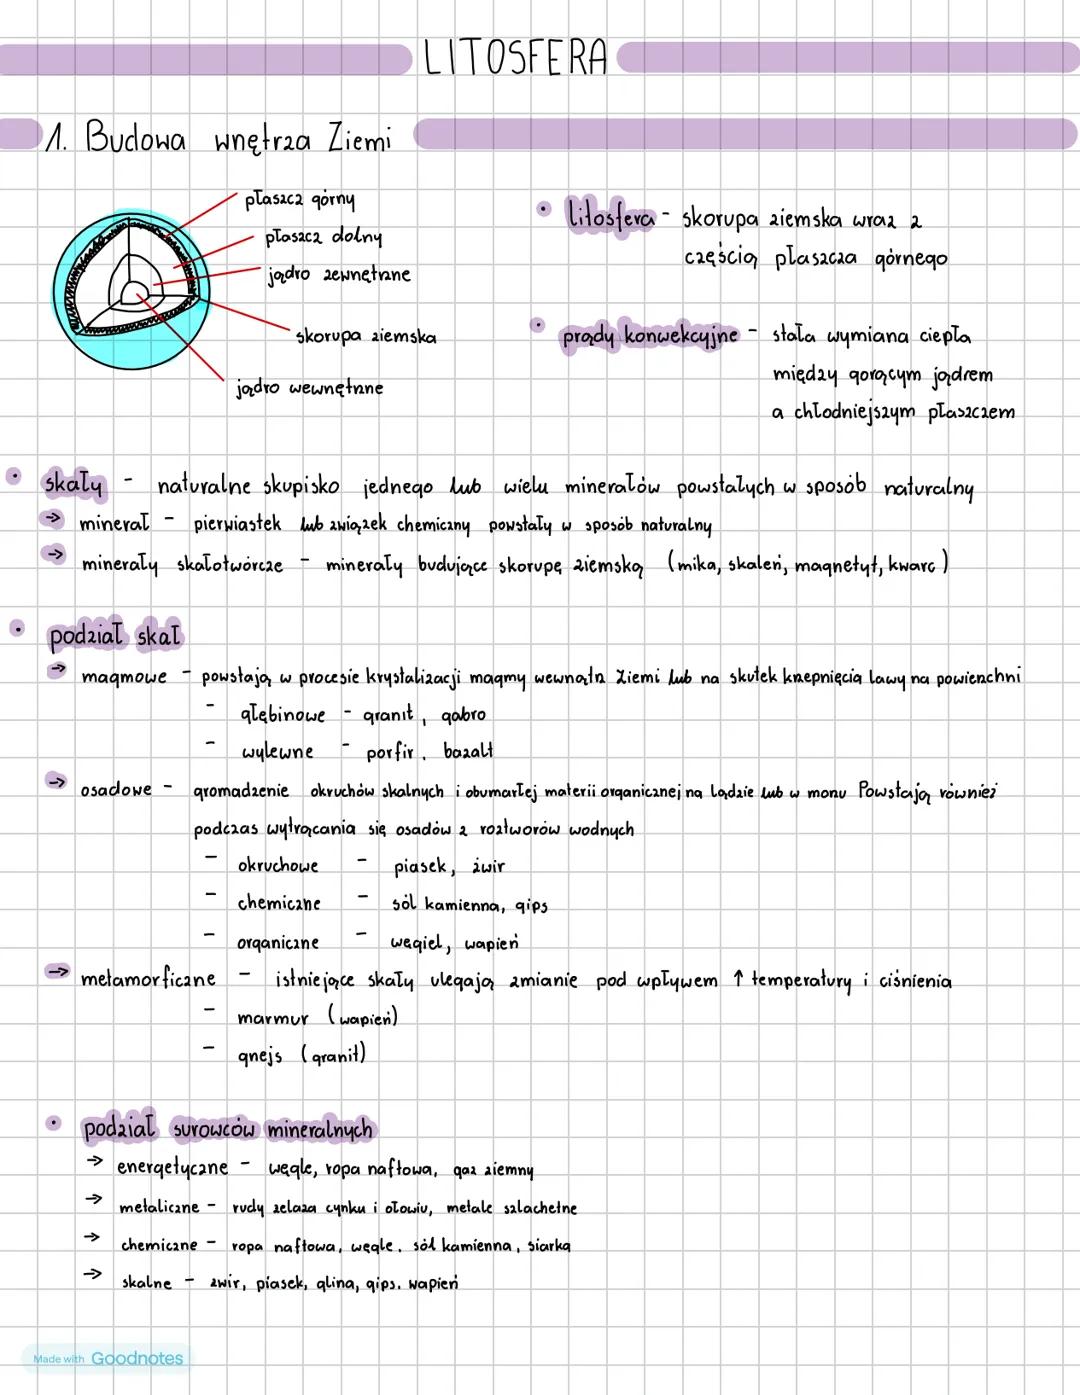 LITOSFERA
1. Budowa wnętrza Ziemi
płaszcz górny
płaszcz dolny
jądro zewnętrzne
skorupa ziemska
jądro wewnętrzne
• litosfera - skorupa ziemska wraz z
częścią płaszcza górnego
• prądy konwekcyjne - stała wymiana ciepła
między gorącym jądrem
a chłodniejszym płaszczem
• skały - naturalne skupisko jednego lub wielu minerałów powstałych w sposób naturalny
→ minerał - pierwiastek lub związek chemiczny powstały w sposób naturalny
→ minerały skałotwórcze - minerały budujące skorupę ziemską (mika, skaleń, magnetyt, kwarc)
• podział skał
→ magmowe - powstają w procesie krystalizacji magmy wewnątrz Ziemi lub na skutek krzepnięcia lawy na powierzchni
- głębinowe - granit, gabro
- wylewne - porfir, bazalt
→ osadowe - gromadzenie okruchów skalnych i obumarłej materii organicznej na lądzie lub w morzu Powstają również
podczas wytrącania się osadów z roztworów wodnych
- okruchowe - piasek, żwir
- chemiczne - sól kamienna, gips
- organiczne - węgiel, wapień
→ metamorficzne - istniejące skały ulegają zmianie pod wpływem ↑ temperatury i ciśnienia
- marmur (wapień)
- gnejs (granit)
• podział surowców mineralnych
→ energetyczne - węgle, ropa naftowa, gaz ziemny
→ metaliczne - rudy żelaza cynku i ołowiu, metale szlachetne
→ chemiczne - ropa naftowa, węgle, sól kamienna, siarka
→ skalne - żwir, piasek, glina, gips. wapień
Made with Goodnotes